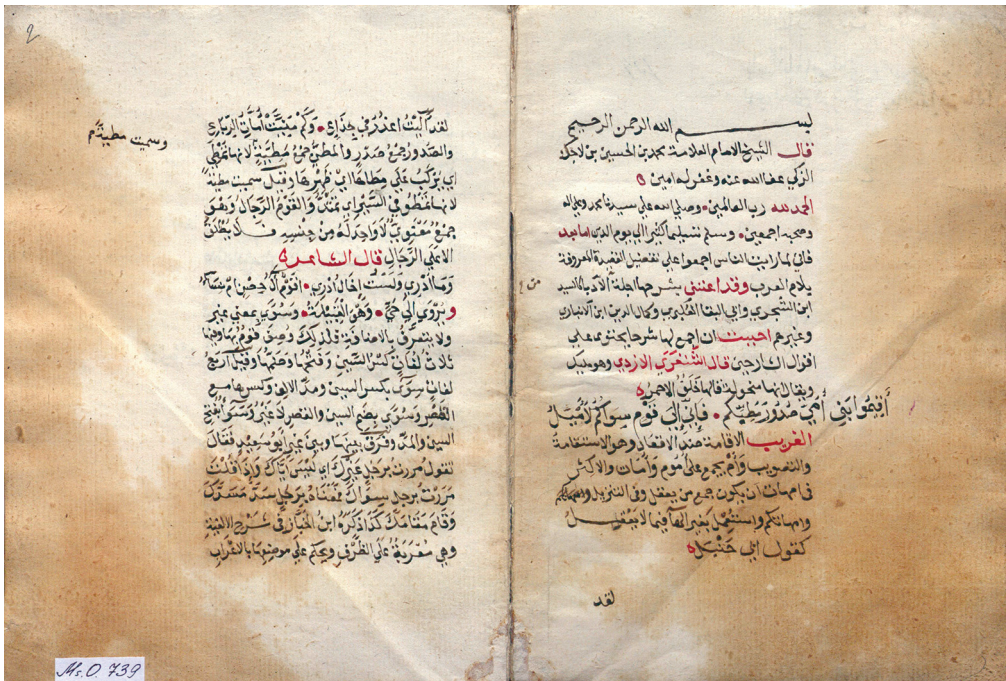 بسم الله الرحمن الرحيم
قال الشيخ الامام العلامة محمد بن الحسين بن لاجك
التركي عفا الله عنه وغفر له امين
الحمد لله رب العالمين وصلي الله علي سيدنا محمد وعلي اله
وصحبه اجمعين وسلم تسليما كثيرا الي يوم الدين اما بعد
فاني لما رايت الناس اجمعوا علي تفضيل القصيدة المعروفة
بلامية العرب وقد اعتني بشرحها اجلة الادباء كالسيد
ابن الشجري وابي البقا العكبري وكمال الدين ابن الانباري
وغيرهم احببت ان اجمع لها شرحا يحتوي علي
اقوال الشارحين قال الشنفري الازدي وهو
ويقال انها منحولة قالها خلف الاحمر
أقيموا بني أمي صدور مطيكم فإني إلى قوم سواكم لأميل
الغريب الاقامة ضد الاقعاد وهو الاستقامة
والتصويب وأم يجمع علي أموم وأمات والاكثر
في امهات ان يكون جمع من يعقل وفي التنزيل وامهاتكم
واستعمل بغير الهآ فيما لا يعقل
كقول ابي حنبل
لقد
2
لقد آليت اغدر في جذاع وكم منيت أمات الرباع
والصدور جمع صدر والمطي جمع مطية لانها تمتطي
اي يركب علي مطاها اي ظهرها وقيل سميت مطية
وسميت مطية
لانها تمطو في السير اي تمتد والقوم الرجال وهو
جمع معنوي لا واحد له من جنسه فلا يطلق
الا علي الرجال قال الشاعر
وما أدري ولست اخال أدري اقوم آل حصن ام نساء
ويروي الي حي وهي القبيلة وسوي بمعني غير
ولا يتعرف بالاضافة فلذلك وصف قوم بها وفيها
ثلاث لغات كسر السين وفتحها وضمها وقيل اربع
لغات سوي بكسر السين ومد الالف وليس ها مع
القصر وسوي بضم السين والقصر لا غير وسوآ بفتح
السين والمد وفرق بينها وبين غير ابو سعيد فقال
تقول مررت برجل غيرك اي ليس اياك واذا قلت
مررت برجل سواك فمعناه برجل سد مسدك
وقام مقامك كذا ذكره ابن الخباز في شرح الالفية
وهي معربة علي الظرف ويحكم علي موضعها بالاعراب
Ms. O. 739